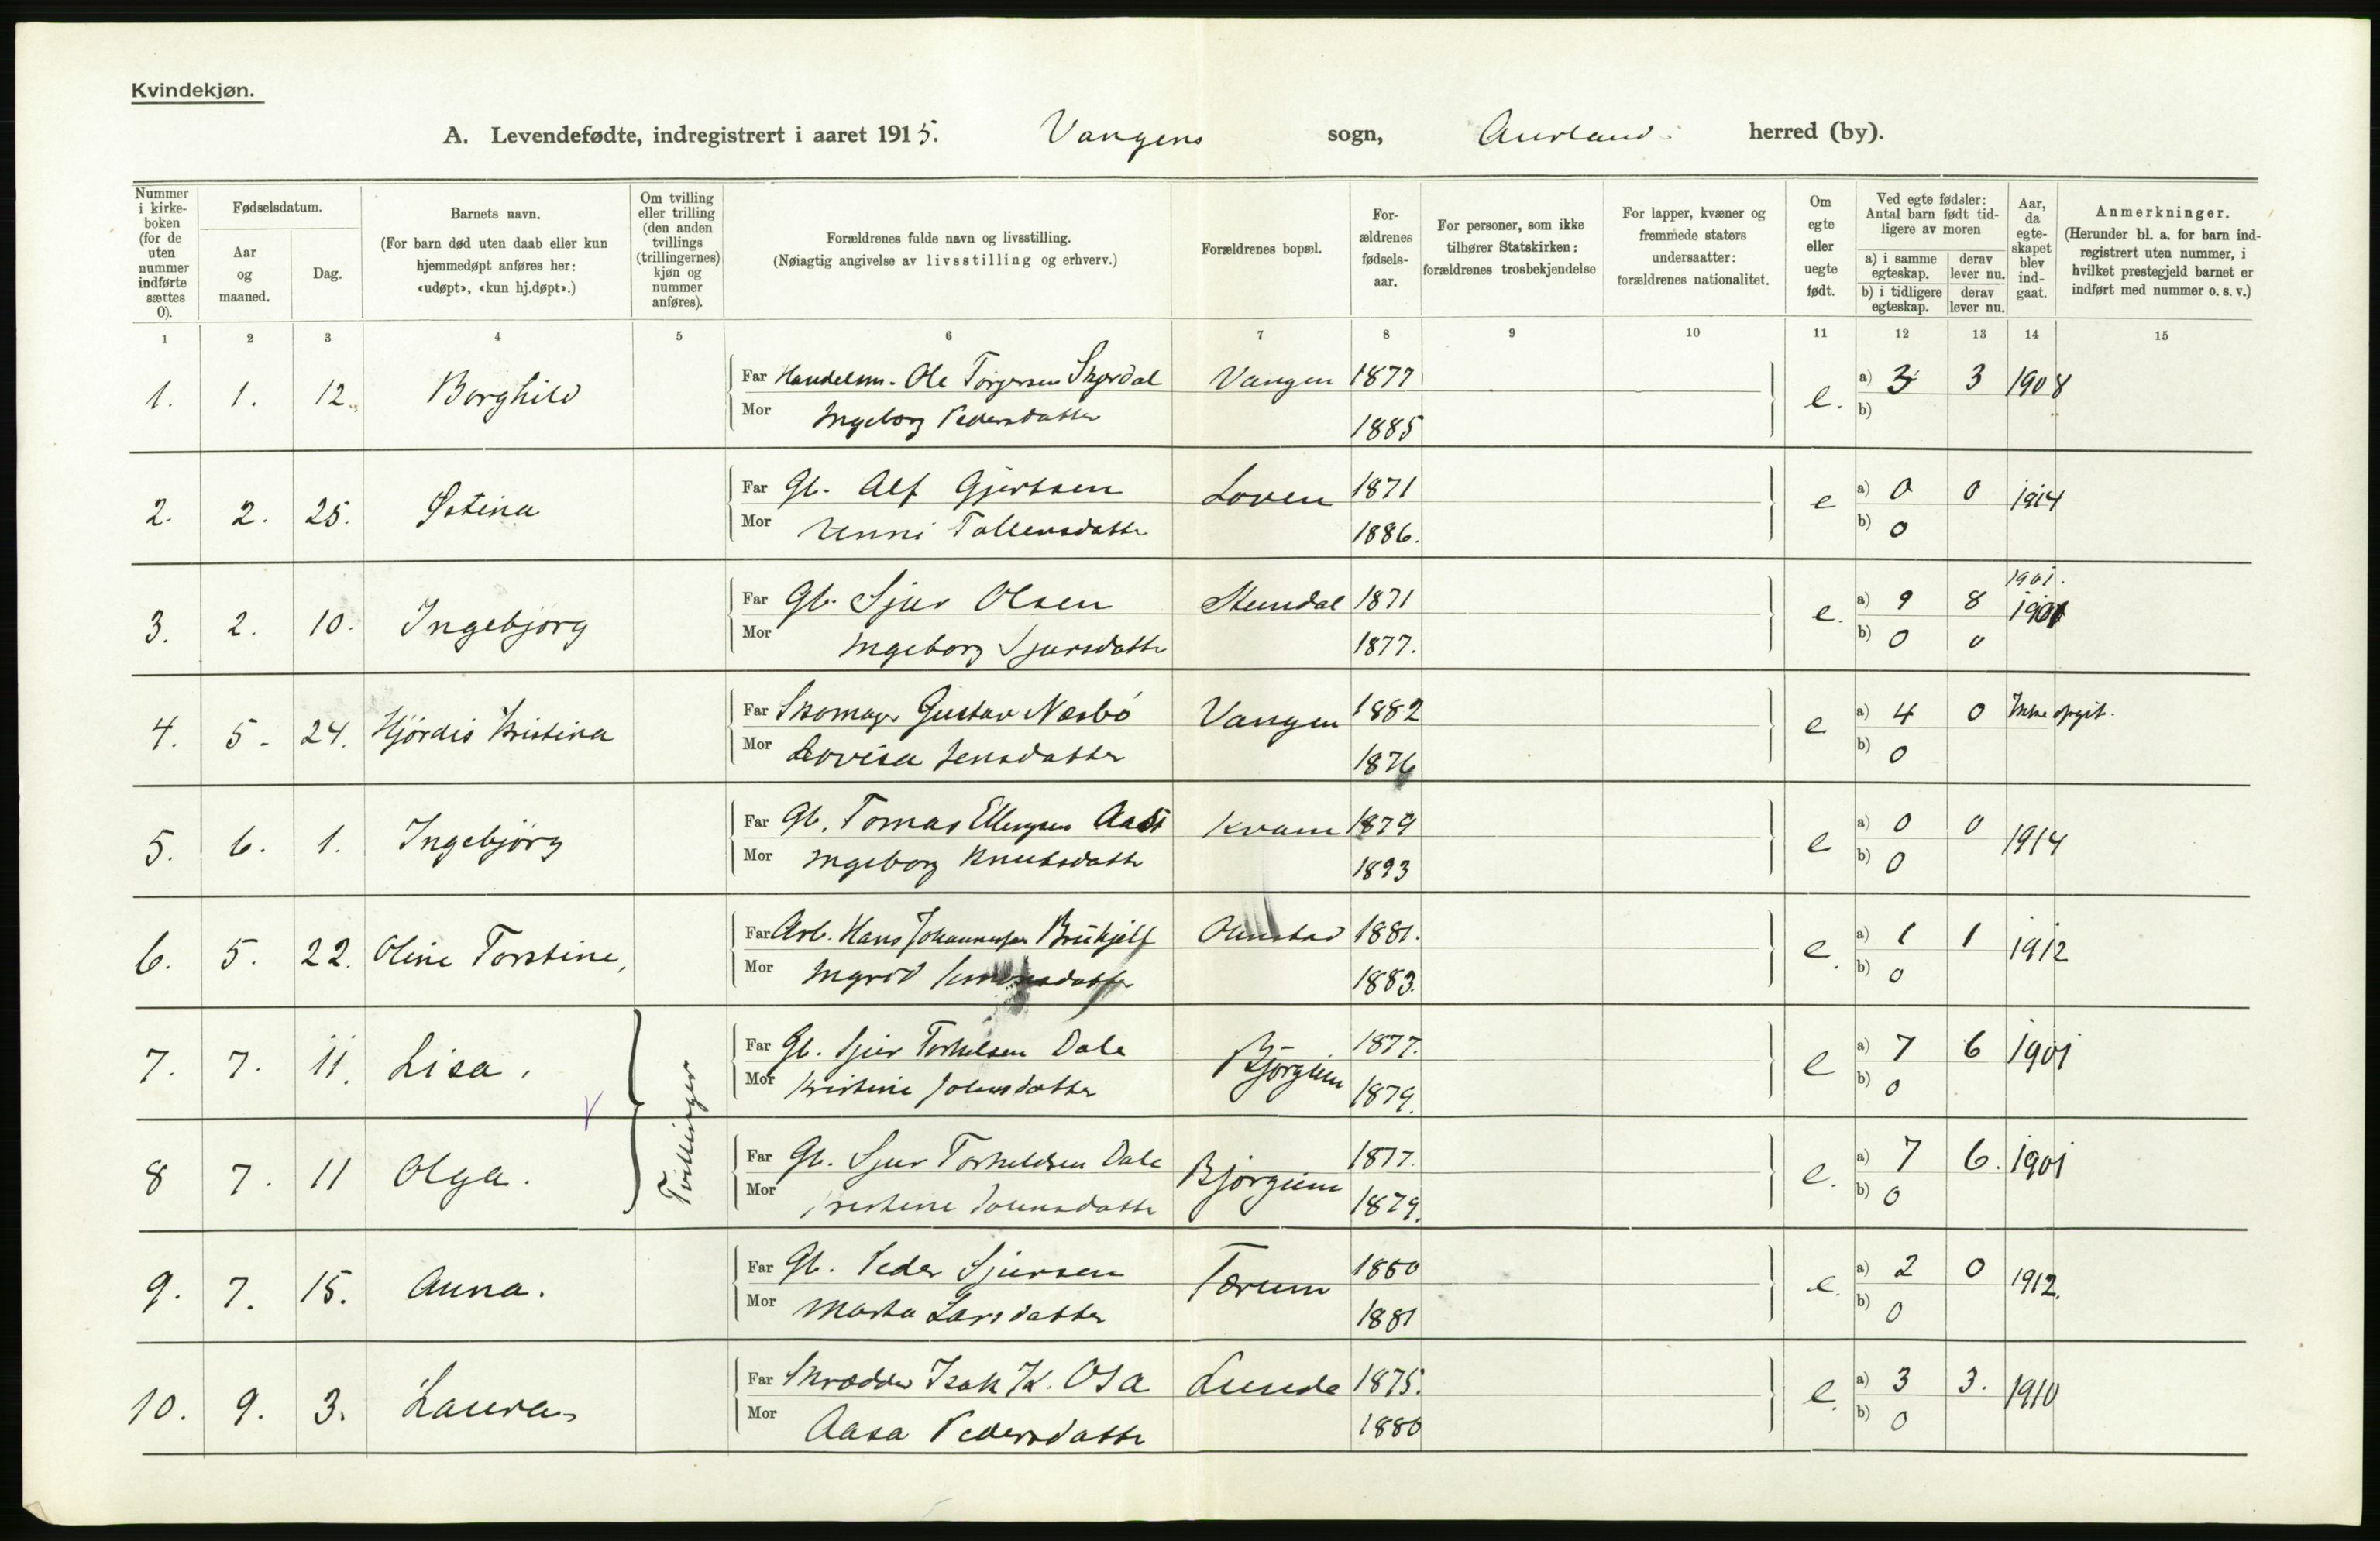 Kvindekjøn.
A. Levendefødte, indregistrert i aaret 1915. Vangens sogn, Aurland herred (by).
Nummer i kirke-boken (for de uten nummer indførte sættes 0).
Fødselsdatum.
Aar og maaned.
Dag.
Barnets navn.
(For barn død uten daab eller kun hjemmedøpt anføres her: «udøpt», «kun hj.døpt».)
Om tvilling eller trilling (den anden tvillings (trillingernes) kjøn og nummer anføres).
Forældrenes fulde navn og livsstilling.
(Nøiagtig angivelse av livsstilling og erhverv.)
Forældrenes bopæl.
For-ældrenes fødsels-aar.
For personer, som ikke tilhører Statskirken: forældrenes trosbekjendelse
For lapper, kvæner og fremmede staters undersaatter: forældrenes nationalitet.
Om egte eller uegte født.
Ved egte fødsler: Antal barn født tid-ligere av moren
a) i samme egteskap.
derav lever nu.
b) i tidligere egteskap.
derav lever nu.
Aar, da egte-skapet blev ind-gaat.
Anmerkninger.
(Herunder bl. a. for barn ind-registrert uten nummer, i hvilket prestegjeld barnet er indført med nummer o. s. v.)
1 2 3 4 5 6 7 8 9 10 11 12 13 14 15
1. 1. 12. Borghild Far Handelsm. Ole Torgersen Skjerdal Vangen 1877 e. a) 3 3 1908
Mor Ingeborg Pedersdatter 1885 b)
2. 2. 25. Far Gb. Alf Gjertsen Loven 1871 e a) 0 0 1914
Mor Unni Tollevsdatte 1886. b) 0
3. 2. 10. Ingebjørg Far Gb. Sjur Olsen Stundal 1871 e. a) 9 8 1901.
1901
Mor Ingeborg Sjursdatte 1877. b) 0 0
4. 5. 24. Hjørdis Kristina Far Skomager Gustav Næsbø Vangen 1882 e a) 4 0 Ikke opgit.
Mor Lovisa Jensdatter 1876 b) 0
5. 6. 1. Ingebjørg Far Gb. Tomas Ellingsen Kvam 1879 e a) 0 0 1914
Mor Ingeborg Knutsdatte 1893 b) 0
6. 5. 22. Oline Torstine, Far Arb. Hans Johannessen Onstad 1881. e. a) 1 1 1912
Mor Ingrid 1883. b) 0
7. 7. 11. Lisa. Tvillinger Far Gb. Sjur Torkelsen Dale Bjørgum 1877. e a) 7 6 1901
Mor Kristine Johnsdatter 1879. b) 0
8 7. 11 Olga. Far Gb. Sjur Torkeldsen Dale Bjørgum 1877. e. a) 7 6. 1901
Mor Kristine Johnsdatte 1879. b) 0
9. 7. 15. Anna. Far Gb. Peder Sjursen Tærum 1860 e. a) 2 0 1912.
Mor Marta Larsdatter 1881 b) 0
10. 9. 3. Laura Far Skrædder Isak K. Osa Lunde 1875. e. a) 3 3. 1910
Mor Aasa Pedersdatte 1880 b) 0